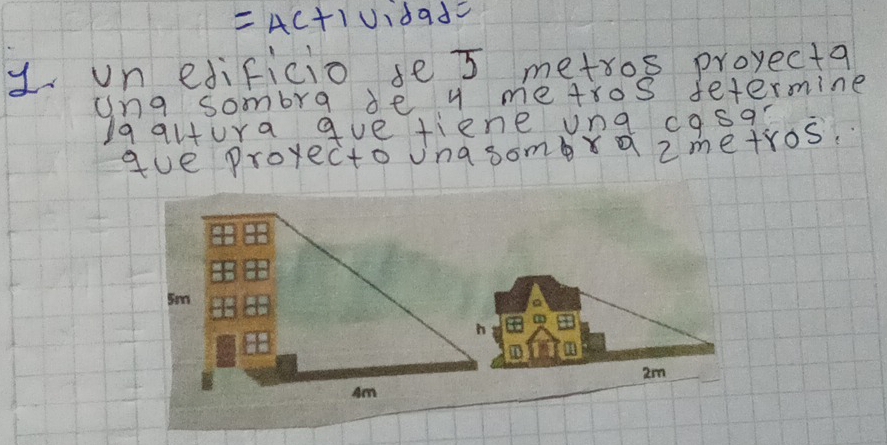 = Actividad =
1. un edificio de 5 metros proyecta
una sombra de 4 metros determine
la altura que tiene una casa
que proyecto una sombra 2 metros.
5m
h
4m
2m